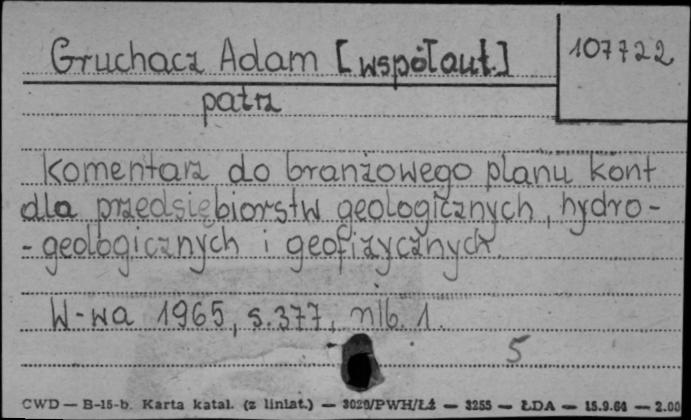 Gruchacz Adam [współaut.]
107722
patrz
Komentarz do branżowego planu kont
dla przedsiębiorstw geologicznych, hydro-
-geologicznych i geofizycznych.
W-wa 1965, s. 377, nlb. 1.
5
CWD — B-15-b. Karta katal. (z liniat.) — 3029/PWH/Łź — 3255 — ŁDA — 15.9.64 — 2.00